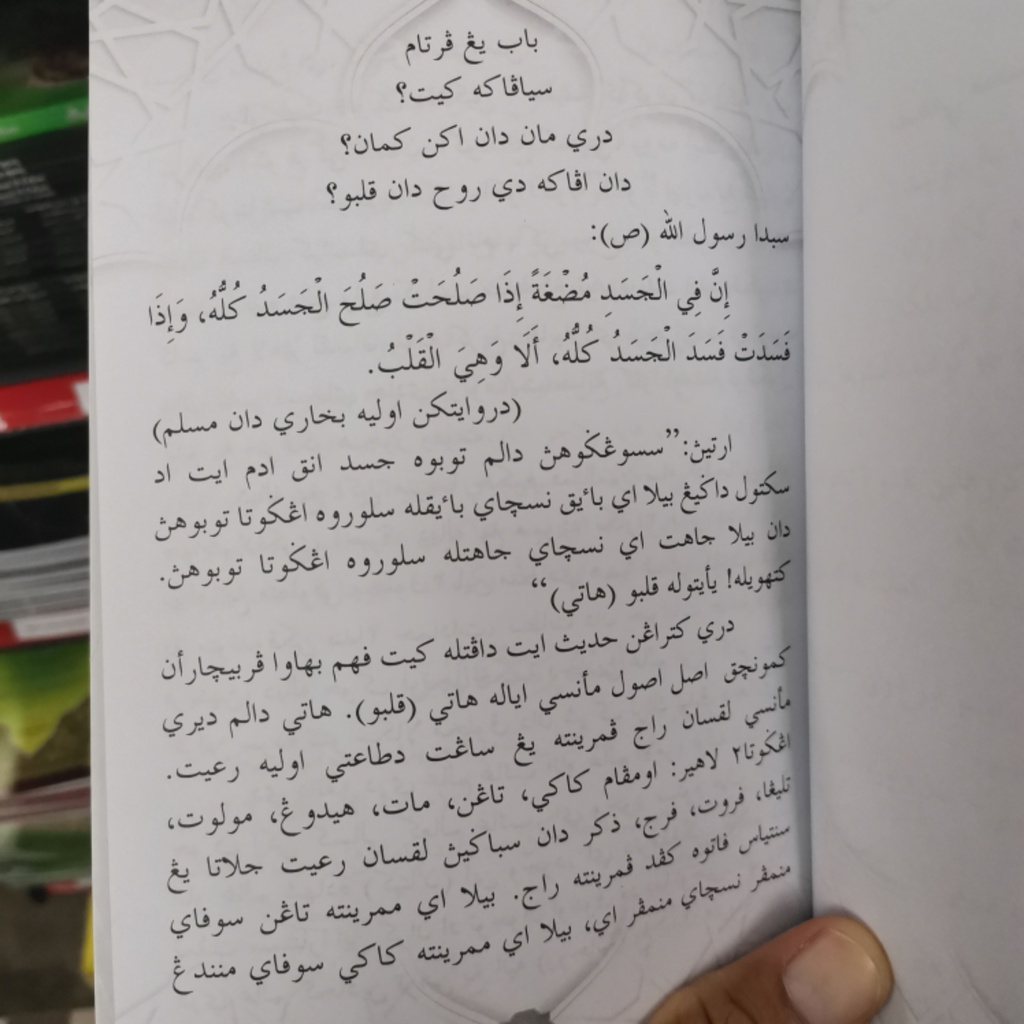 باب يڠ ڤرتام
سياڤاكه كيت؟
دري مان دان اكن كمان؟
دان اڤاكه دي روح دان قلبو؟
سبدا رسول الله (ص):
إِنَّ فِي الْجَسَدِ مُضْغَةً إِذَا صَلُحَتْ صَلُحَ الْجَسَدُ كُلُّهُ، وَإِذَا
فَسَدَتْ فَسَدَ الْجَسَدُ كُلُّهُ، أَلَا وَهِيَ الْقَلْبُ.
(دروايتكن اوليه بخاري دان مسلم)
ارتيڽ:”سسوڠݢوهڽ دالم توبوه جسد انق ادم ايت اد
سكتول داݢيڠ بيلا اي باٴيق نسچاي باٴيقله سلوروه اڠݢوتا توبوهڽ
دان بيلا جاهت اي نسچاي جاهتله سلوروه اڠݢوتا توبوهڽ.
كتهويله! يأيتوله قلبو (هاتي)“
دري كتراڠن حديث ايت داڤتله كيت فهم بهاوا ڤربيچارأن
كمونچق اصل اصول مأنسي اياله هاتي (قلبو). هاتي دالم ديري
مأنسي لقسان راج ڤمرينته يڠ ساڠت دطاعتي اوليه رعيت.
اڠݢوتا٢ لاهير: اومڤام كاكي، تاڠن، مات، هيدوڠ، مولوت،
تليڠا، فروت، فرج، ذكر دان سباݢيڽ لقسان رعيت جلاتا يڠ
سنتياس فاتوه كڤد ڤمرينته راج. بيلا اي ممرينته تاڠن سوفاي
منمڤر نسچاي منمڤر اي، بيلا اي ممرينته كاكي سوفاي منندڠ